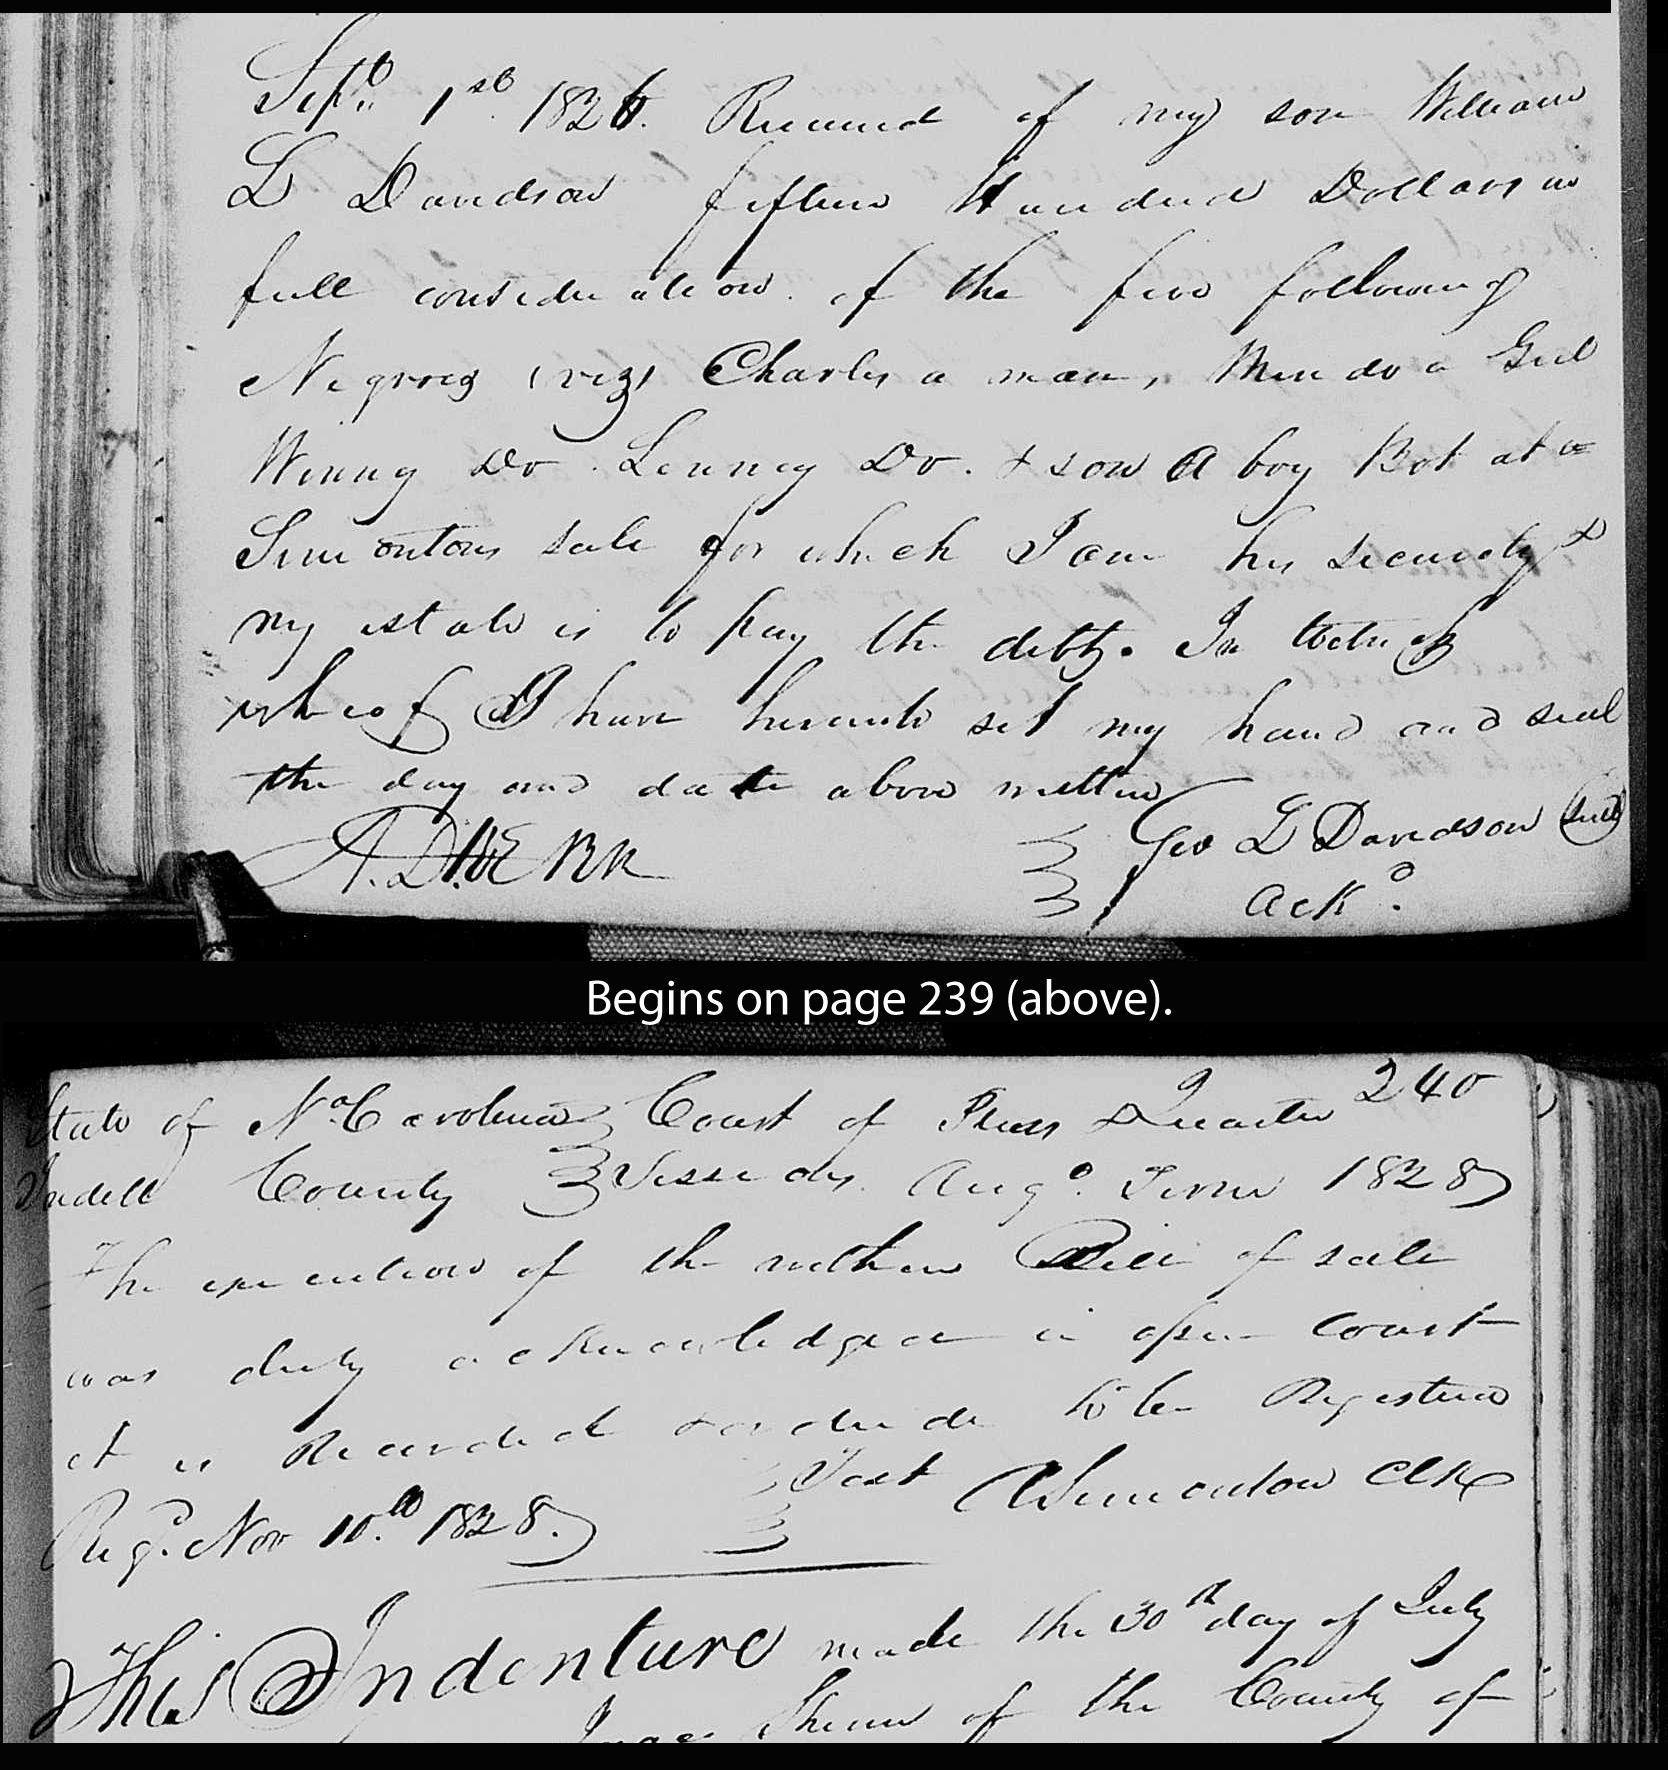 Sept. 1st. 1826. Received of my son William
L Davidson fifteen Hundred Dollars in
full consideration of the five following
Negroes (viz) Charles a man, a Girl
Winny Do. Do. & son a boy Bot at
Simontons sale for which I am his security &
my estate is to pay the debt. In
whereof I have hereunto set my hand and seal
the day and date above written
A. D. KERR Geo L Davidson (seal)
Ackd.
Begins on page 239 (above).
240
State of No Carolina Court of Pleas & Quarter
Iredell County Sessions Augt. Term 1828
The execution of the within Bill of sale
was duly acknowledged in open court
it is Recorded & ordered to be Registered
Test A Simonton Clk
Regd. Nov 10th 1828.
This Indenture made the 30th day of July
of the County of